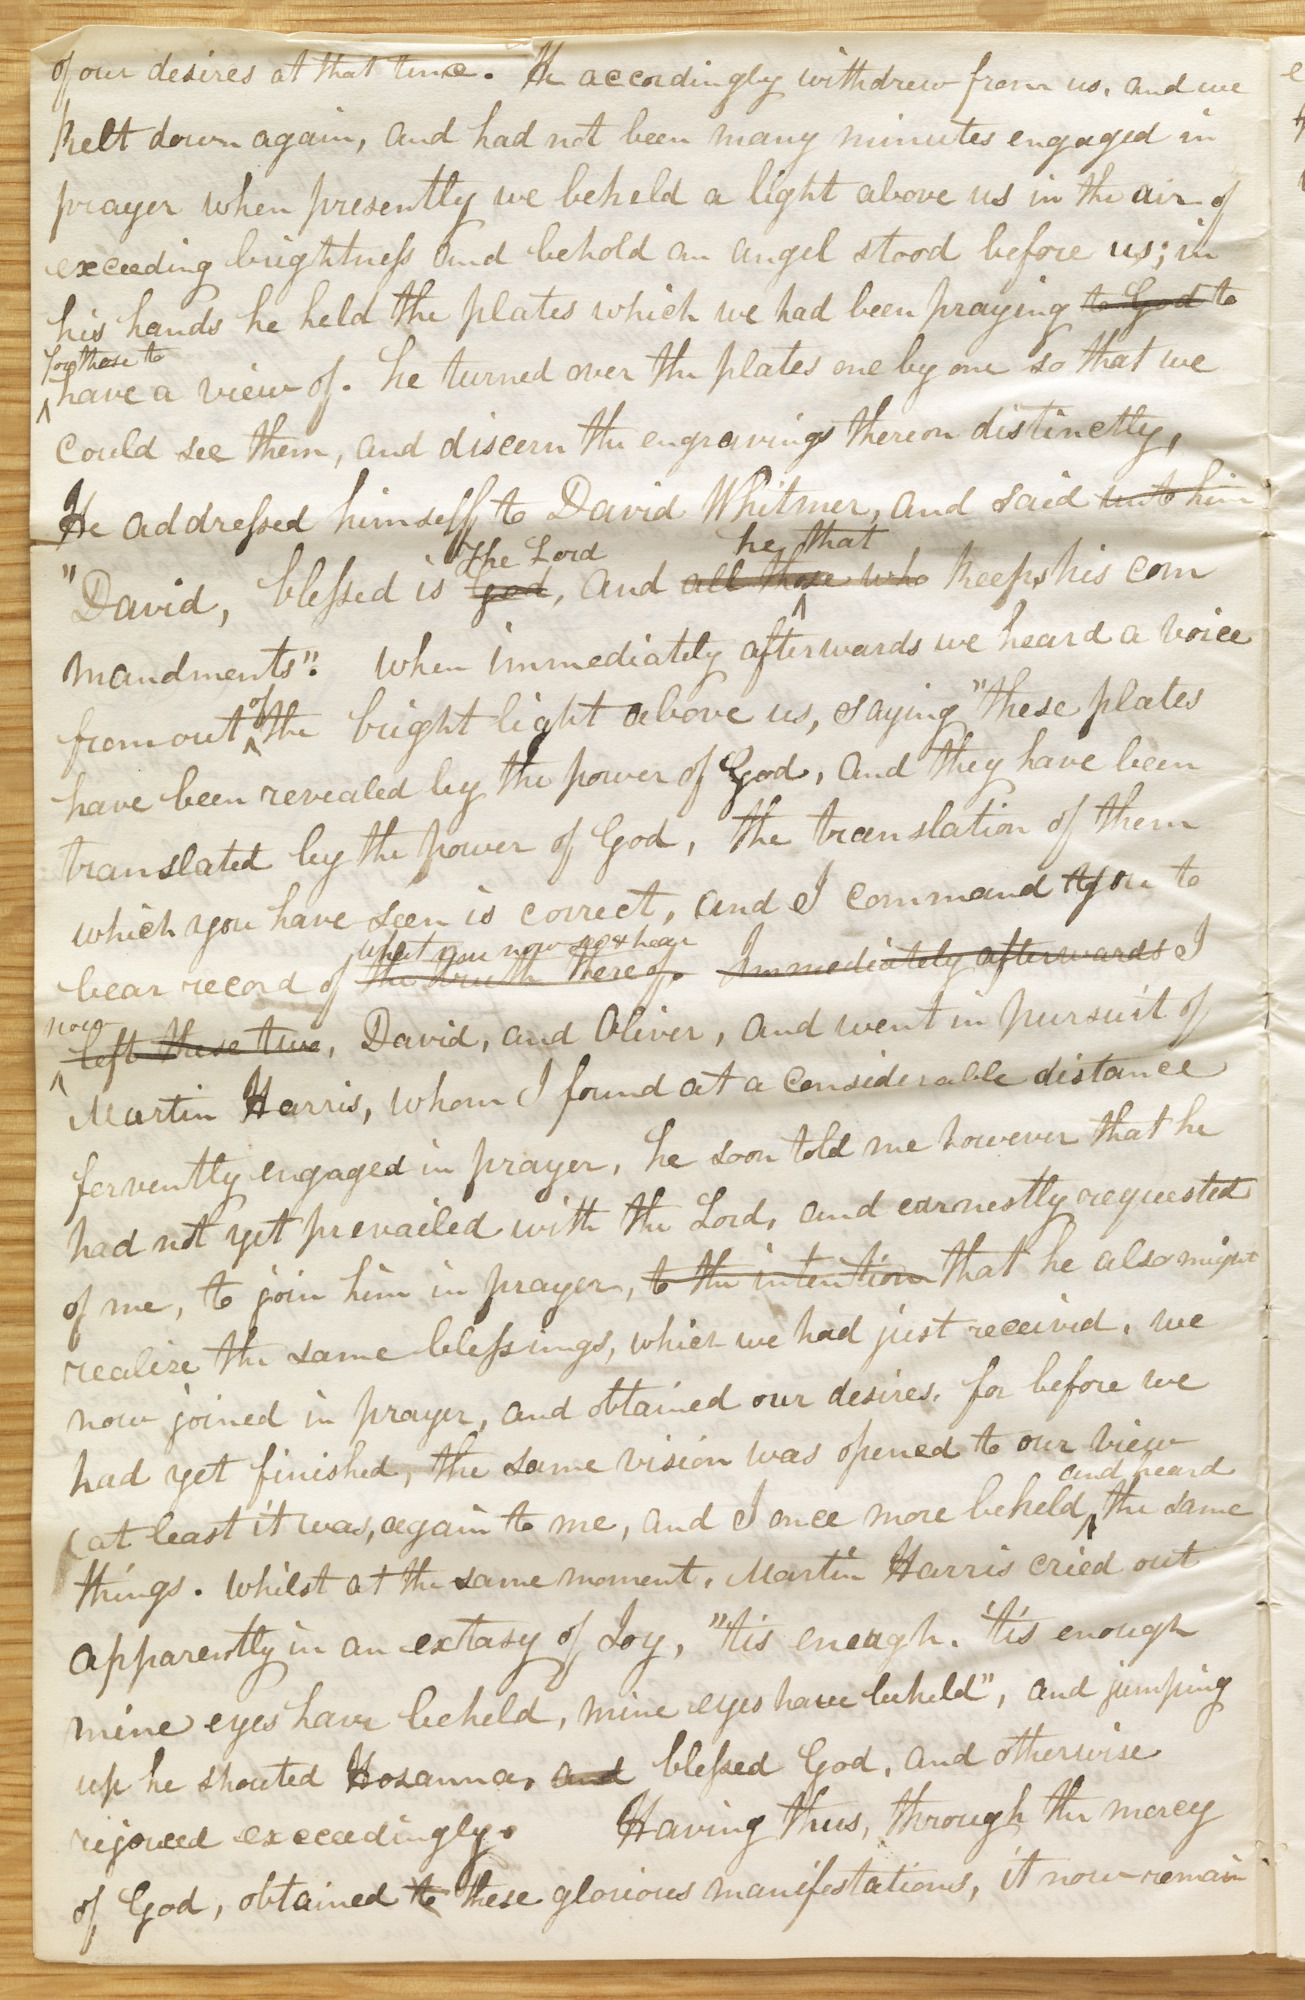 of our desires at that time. He accordingly withdrew from us, and we
knelt down again, and had not been many minutes engaged in
prayer when presently we beheld a light above us in the air of
exceeding brightness and behold an angel stood before us; in
his hands he held the plates which we had been praying to God to
for these to
have a view of. he turned over the plates one by one so that we
could see them, and discern the engravings thereon distinctly,
He addressed himself to David Whitmer, and said unto him
The Lord he that
"David, blessed is God, and all those who keeps his com
mandments". when immediately afterwards we heard a voice
of
from out the bright light above us, saying "these plates
have been revealed by the power of God, and they have been
translated by the power of God, the translation of them
which you have seen is correct, and I command you to
what you now see & hear
bear record of the truth thereof. Immediately afterwards I
now
left these two, David, and Oliver, and went in pursuit of
Martin Harris, whom I found at a considerable distance
fervently engaged in prayer, he soon told me however that he
had not yet prevailed with the Lord, and earnestly requested
of me, to join him in prayer, to the intention that he also might
realize the same blessings, which we had just received. we
now joined in prayer, and obtained our desires. for before we
had yet finished, the same vision was opened to our view
and heard
(at least it was, again to me, and I once more beheld, the same
things. whilst at the same moment, Martin Harris cried out
apparently in an extasy of Joy, "tis enough. 'tis enough
mine eyes have beheld, mine eyes have beheld", and jumping
up he shouted Hosanna, and blessed God, and otherwise
rejoiced exceedingly. Having thus, through the mercy
of God, obtained to these glorious manifestations, it now remain